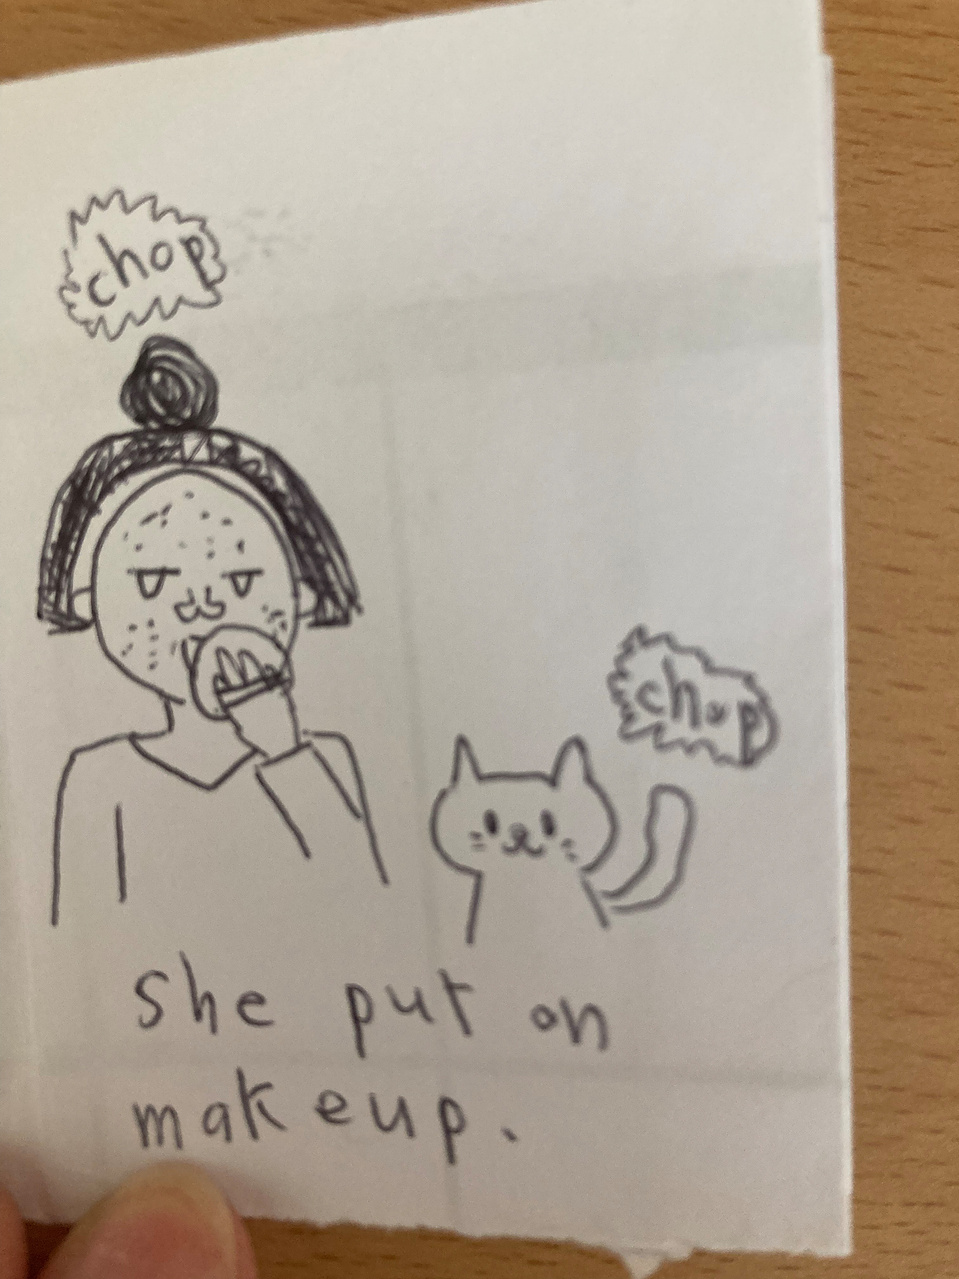 chop
chop
she put on
makeup.